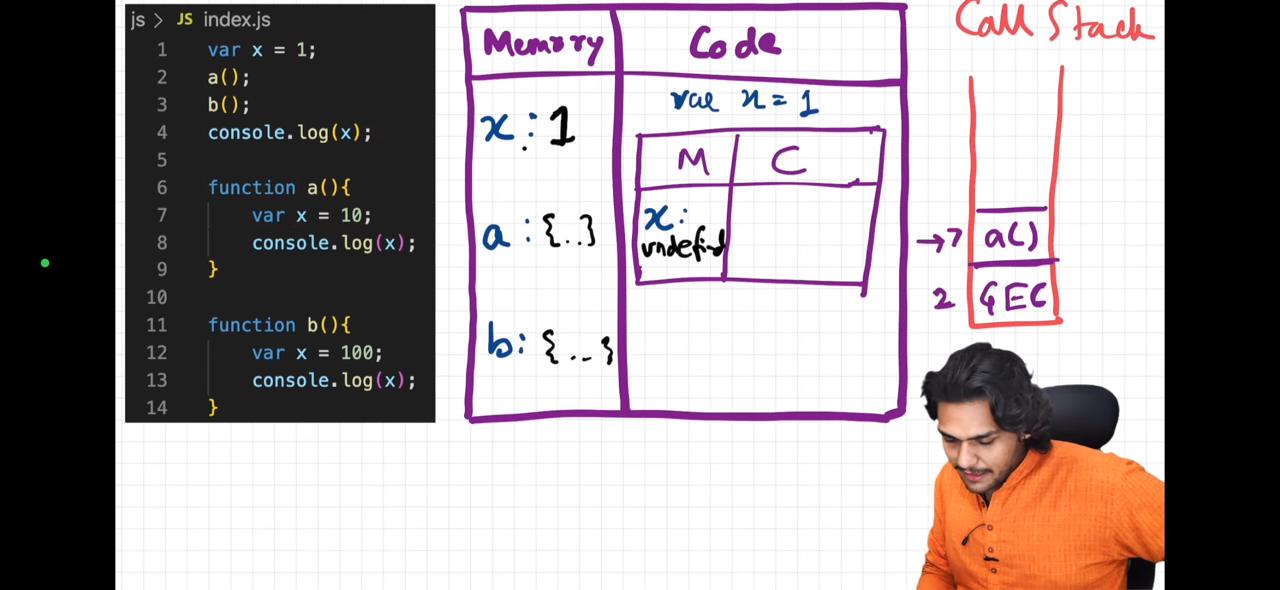 js > JS index.js
1 var x = 1;
2 a();
3 b();
4 console.log(x);
5
6 function a(){
7 var x = 10;
8 console.log(x);
9 }
10
11 function b(){
12 var x = 100;
13 console.log(x);
14 }
Memory Code
x : 1
a : {..}
b : {...}
var x = 1
M C
x :
undefind
Call Stack
→7 a()
2 GEC